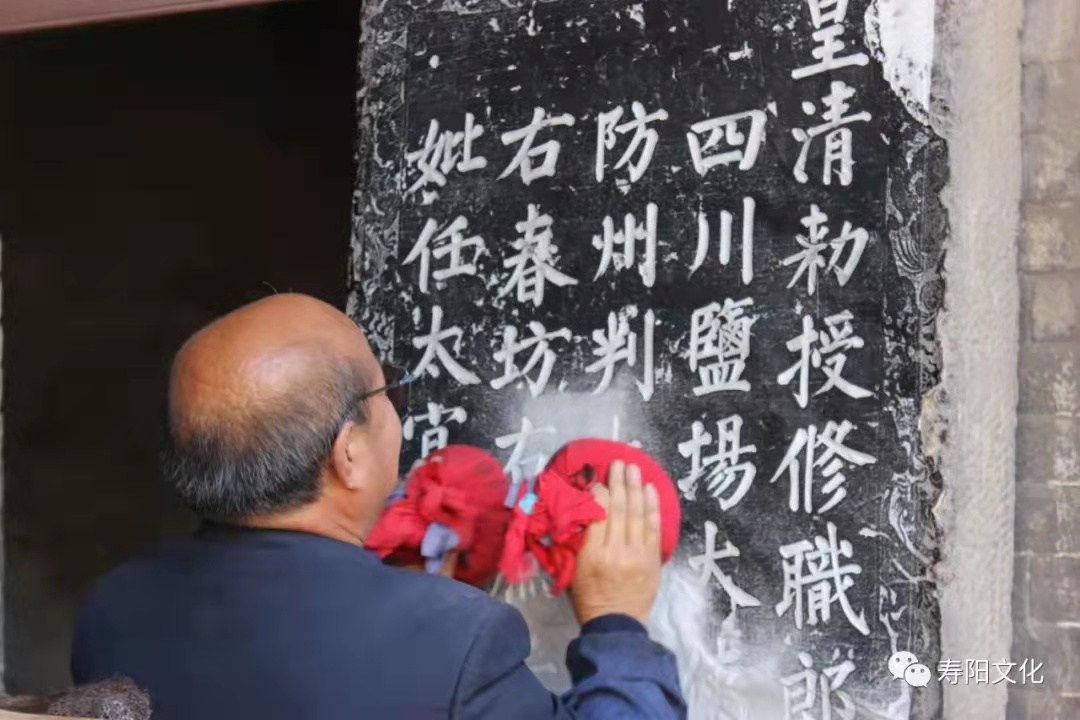 皇清勅授修職郎
四川鹽場大
防州判
右春坊右
妣任太宜
寿阳文化